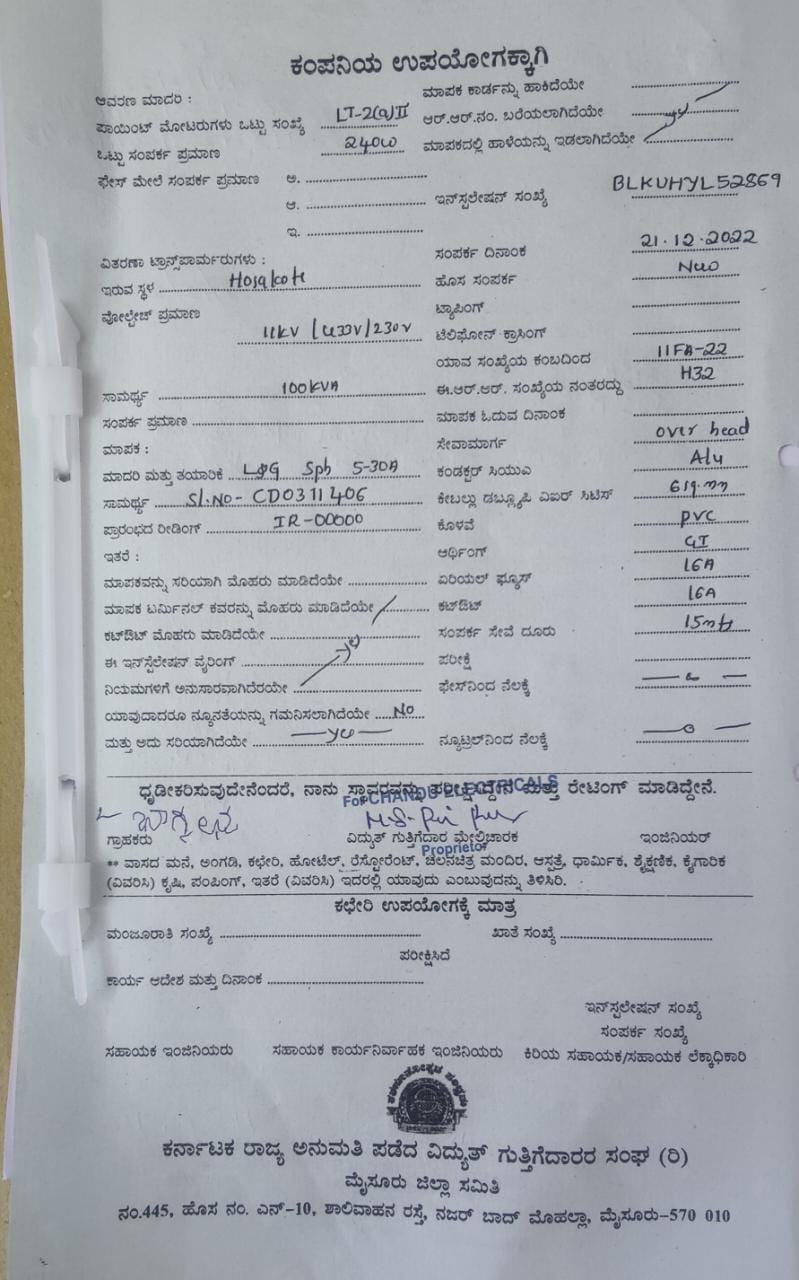 ಕಂಪನಿಯ ಉಪಯೋಗಕ್ಕಾಗಿ
ಆವರಣ ಮಾದರಿ : ಮಾಪಕ ಕಾರ್ಡನ್ನು ಹಾಕಿದೆಯೇ
ಪಾಯಿಂಟ್ ಮೋಟರುಗಳು ಒಟ್ಟು ಸಂಖ್ಯೆ LT-2(a)II ಆರ್.ಆರ್.ನಂ. ಬರೆಯಲಾಗಿದೆಯೇ
ಒಟ್ಟು ಸಂಪರ್ಕ ಪ್ರಮಾಣ 2400 ಮಾಪಕದಲ್ಲಿ ಹಾಳೆಯನ್ನು ಇಡಲಾಗಿದೆಯೇ
ಫೇಸ್ ಮೇಲೆ ಸಂಪರ್ಕ ಪ್ರಮಾಣ ಅ.
ಆ. ಇನ್‌ಸ್ಪಲೇಷನ್ ಸಂಖ್ಯೆ BLKUHYL52869
ಇ.
ವಿತರಣಾ ಟ್ರಾನ್ಸ್‌ಪಾರ್ಮರುಗಳು : ಸಂಪರ್ಕ ದಿನಾಂಕ 21.12.2022
ಇರುವ ಸ್ಥಳ Hosakote ಹೊಸ ಸಂಪರ್ಕ New
ವೋಲ್ಟೇಜ್ ಪ್ರಮಾಣ ಟ್ಯಾಪಿಂಗ್
11KV / 433V/230V ಟೆಲಿಫೋನ್ ಕ್ರಾಸಿಂಗ್
ಯಾವ ಸಂಖ್ಯೆಯ ಕಂಬದಿಂದ 11FA-22
ಸಾಮರ್ಥ್ಯ 100KVA ಈ.ಆರ್.ಆರ್. ಸಂಖ್ಯೆಯ ನಂತರದ್ದು H32
ಸಂಪರ್ಕ ಪ್ರಮಾಣ ಮಾಪಕ ಓದುವ ದಿನಾಂಕ
ಮಾಪಕ : ಸೇವಾಮಾರ್ಗ over head
ಮಾದರಿ ಮತ್ತು ತಯಾರಿಕೆ L&G Sph 5-30A ಕಂಡಕ್ಟರ್ ಸಿಯುಎ Alu
ಸಾಮರ್ಥ್ಯ Sl.No- CD0311406 ಕೇಬಲ್ಲು ಡಬ್ಲ್ಯೂಪಿ ವಿಐರ್ ಸಿಟಿಸ್ 6sq.mm
ಪ್ರಾರಂಭದ ರೀಡಿಂಗ್ IR-00000 ಕೊಳವೆ PVC
ಇತರೆ : ಆರ್ಥಿಂಗ್ GI
ಮಾಪಕವನ್ನು ಸರಿಯಾಗಿ ಮೊಹರು ಮಾಡಿದೆಯೇ ಏರಿಯಲ್ ಫ್ಯೂಸ್ 16A
ಮಾಪಕ ಟರ್ಮಿನಲ್ ಕವರನ್ನು ಮೊಹರು ಮಾಡಿದೆಯೇ ಕಟ್‌ಔಟ್ 16A
ಕಟ್‌ಔಟ್ ಮೊಹರು ಮಾಡಿದೆಯೇ ಸಂಪರ್ಕ ಸೇವೆ ದೂರು 15mts
ಈ ಇನ್‌ಸ್ಪೆಲೇಷನ್ ವೈರಿಂಗ್ ಪರೀಕ್ಷೆ
ನಿಯಮಗಳಿಗೆ ಅನುಸಾರವಾಗಿದೆರಯೇ ಫೇಸ್‌ನಿಂದ ನೆಲಕ್ಕೆ
ಯಾವುದಾದರೂ ನ್ಯೂನತೆಯನ್ನು ಗಮನಿಸಲಾಗಿದೆಯೇ No
ಮತ್ತು ಅದು ಸರಿಯಾಗಿದೆಯೇ ನ್ಯೂಟ್ರಲ್‌ನಿಂದ ನೆಲಕ್ಕೆ
ಧೃಡೀಕರಿಸುವುದೇನೆಂದರೆ, ನಾನು ಸ್ಥಾವರವನ್ನು ಪರೀಕ್ಷಿದ್ದೇನೆ ಮತ್ತು ರೇಟಿಂಗ್ ಮಾಡಿದ್ದೇನೆ.
ಗ್ರಾಹಕರು ವಿದ್ಯುತ್ ಗುತ್ತಿಗೆದಾರ ಮೇಲ್ವಿಚಾರಕ ಇಂಜಿನಿಯರ್
Proprietor
** ವಾಸದ ಮನೆ, ಅಂಗಡಿ, ಕಛೇರಿ, ಹೋಟೆಲ್, ರೆಸ್ಟೋರೆಂಟ್, ಚಲನಚಿತ್ರ ಮಂದಿರ, ಆಸ್ಪತ್ರೆ, ಧಾರ್ಮಿಕ, ಶೈಕ್ಷಣಿಕ, ಕೈಗಾರಿಕ
(ವಿವರಿಸಿ) ಕೃಷಿ, ಪಂಪಿಂಗ್, ಇತರೆ (ವಿವರಿಸಿ) ಇದರಲ್ಲಿ ಯಾವುದು ಎಂಬುವುದನ್ನು ತಿಳಿಸಿರಿ.
ಕಛೇರಿ ಉಪಯೋಗಕ್ಕೆ ಮಾತ್ರ
ಮಂಜೂರಾತಿ ಸಂಖ್ಯೆ ಖಾತೆ ಸಂಖ್ಯೆ
ಪರೀಕ್ಷಿಸಿದೆ
ಕಾರ್ಯ ಆದೇಶ ಮತ್ತು ದಿನಾಂಕ
ಇನ್‌ಸ್ಪಲೇಷನ್ ಸಂಖ್ಯೆ
ಸಂಪರ್ಕ ಸಂಖ್ಯೆ
ಸಹಾಯಕ ಇಂಜಿನಿಯರು ಸಹಾಯಕ ಕಾರ್ಯನಿರ್ವಾಹಕ ಇಂಜಿನಿಯರು ಕಿರಿಯ ಸಹಾಯಕ/ಸಹಾಯಕ ಲೆಕ್ಕಾಧಿಕಾರಿ
ಕರ್ನಾಟಕ ರಾಜ್ಯ ಅನುಮತಿ ಪಡೆದ ವಿದ್ಯುತ್ ಗುತ್ತಿಗೆದಾರರ ಸಂಘ (ರಿ)
ಮೈಸೂರು ಜಿಲ್ಲಾ ಸಮಿತಿ
ನಂ.445, ಹೊಸ ನಂ. ಎನ್-10, ಶಾಲಿವಾಹನ ರಸ್ತೆ, ನಜರ್ ಬಾದ್ ಮೊಹಲ್ಲಾ, ಮೈಸೂರು-570 010